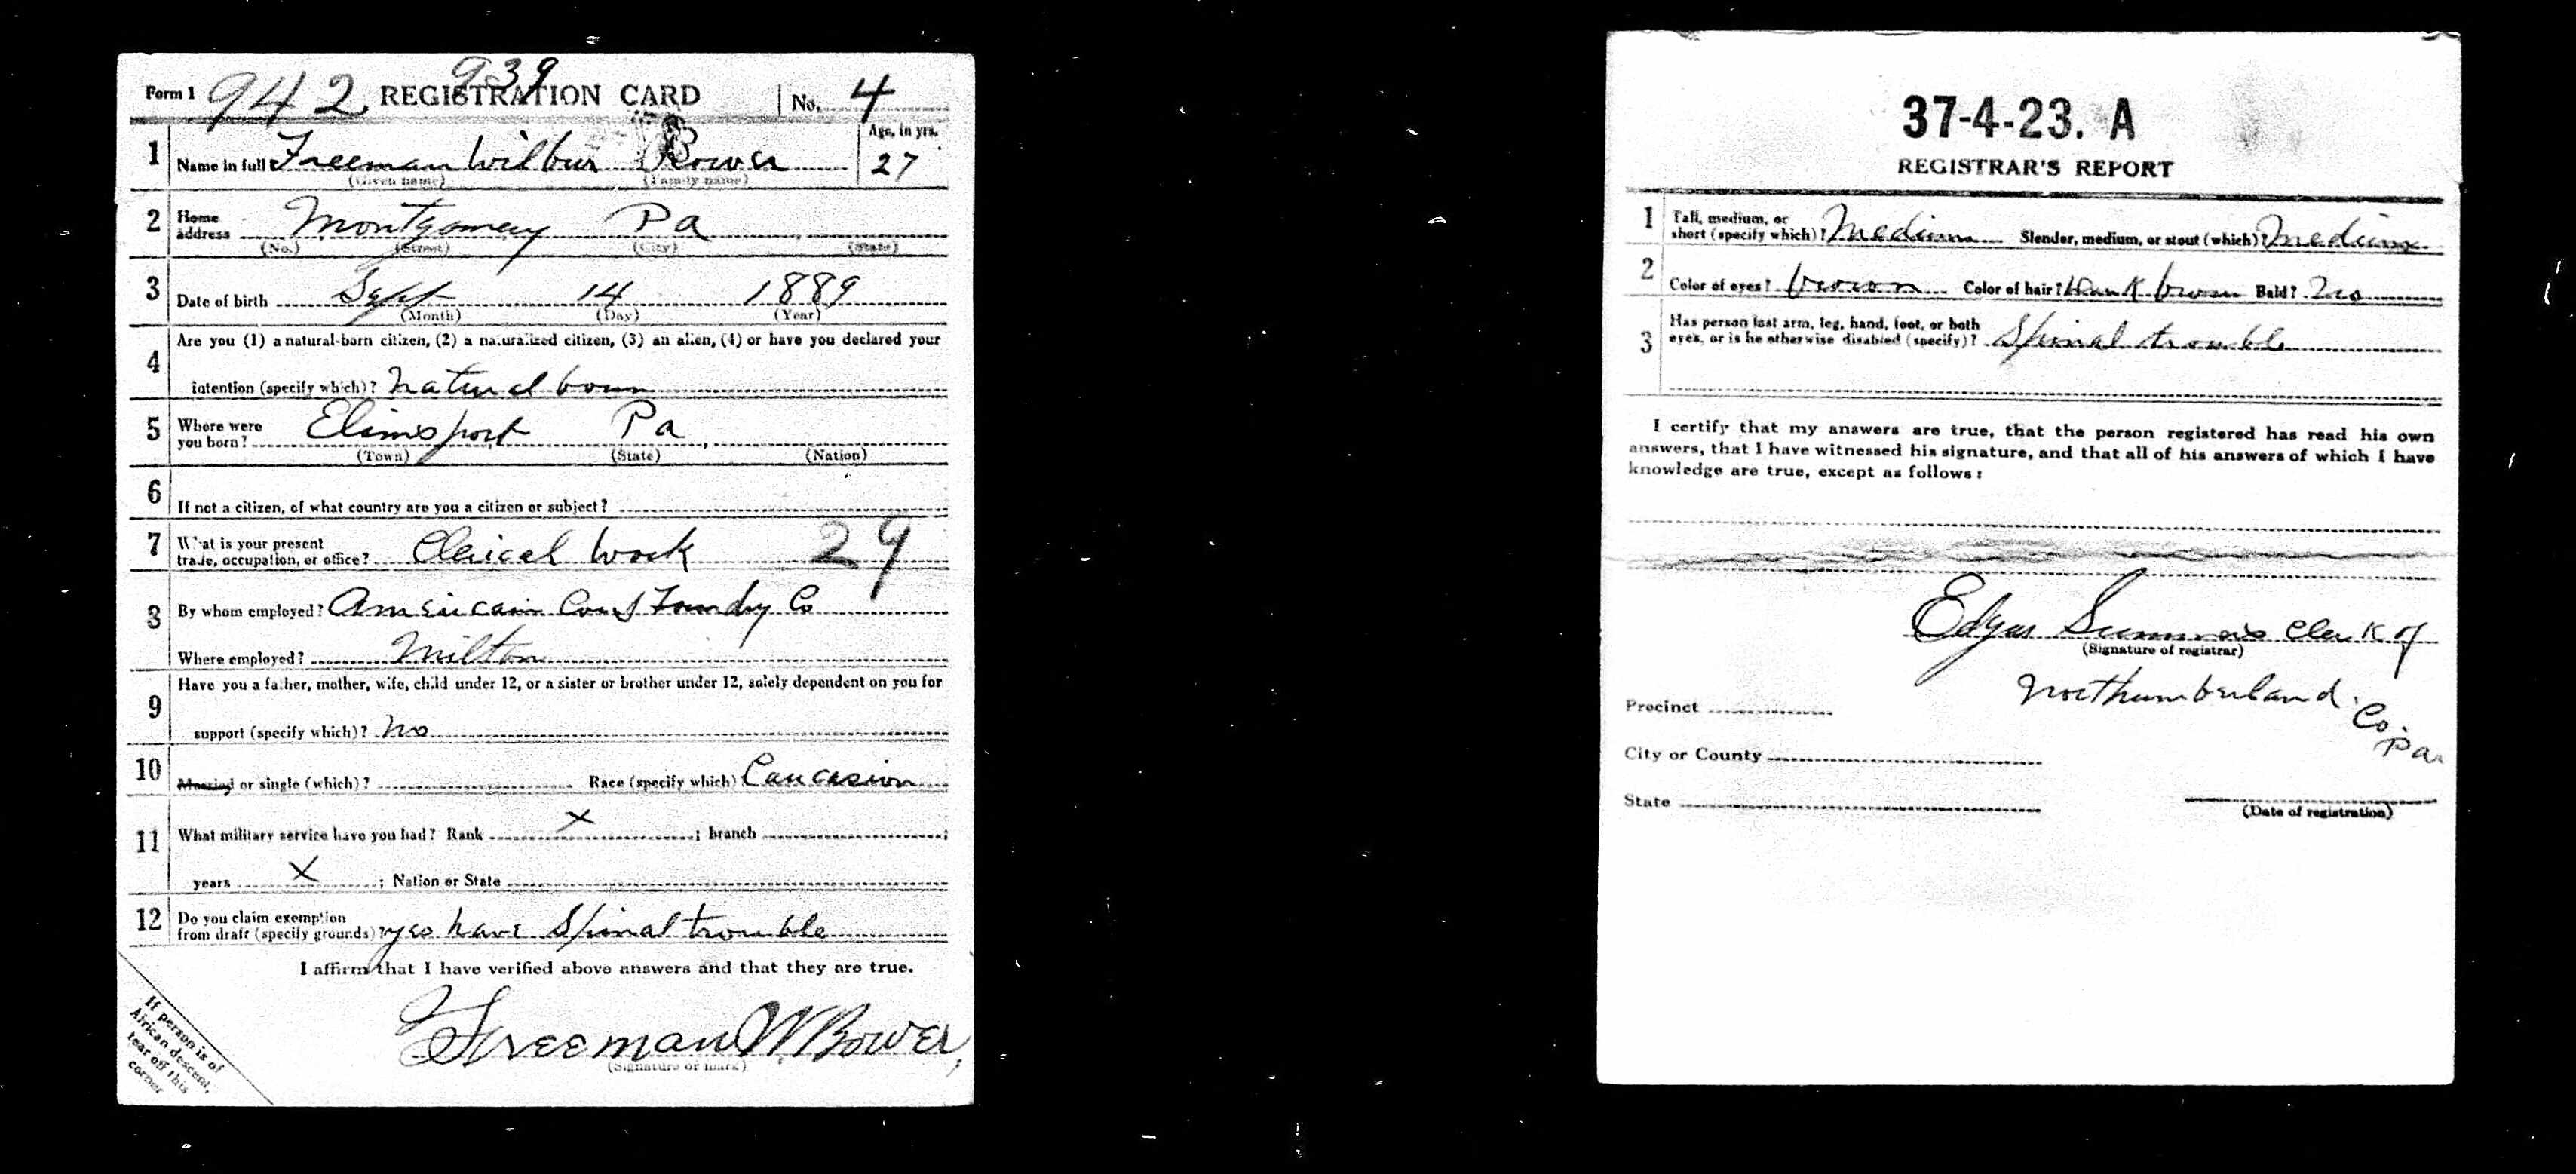 939
Form 1 942 REGISTRATION CARD No. 4
1 Name in full Freeman Wilbur Bower Age, in yrs. 27
(Given name) (Family name)
2 Home address Montgomery Pa
(No.) (Street) (City) (State)
3 Date of birth Sept 14 1889
(Month) (Day) (Year)
4 Are you (1) a natural-born citizen, (2) a naturalized citizen, (3) an alien, (4) or have you declared your
intention (specify which)? natural born
5 Where were you born? Elimsport Pa
(Town) (State) (Nation)
6 If not a citizen, of what country are you a citizen or subject?
7 What is your present trade, occupation, or office? Clerical Work 29
8 By whom employed? American Car & Foundry Co
Where employed? Milton
9 Have you a father, mother, wife, child under 12, or a sister or brother under 12, solely dependent on you for
support (specify which)? no
10 Married or single (which)? Race (specify which) Caucasion
11 What military service have you had? Rank X ; branch ;
years X ; Nation or State
12 Do you claim exemption from draft (specify grounds)? yes have Spinal trouble
I affirm that I have verified above answers and that they are true.
Freeman W. Bower,
(Signature or mark)
If person is of
African descent,
tear off this
corner
37-4-23. A
REGISTRAR'S REPORT
1 Tall, medium, or short (specify which)? Medium Slender, medium, or stout (which)? Medium
2 Color of eyes? brown Color of hair? Dark brown Bald? No
3 Has person lost arm, leg, hand, foot, or both eyes, or is he otherwise disabled (specify)? Spinal trouble
I certify that my answers are true, that the person registered has read his own
answers, that I have witnessed his signature, and that all of his answers of which I have
knowledge are true, except as follows:
Edgar Summers Clerk of
(Signature of registrar)
Northumberland Co. Pa.
Precinct
City or County
State
(Date of registration)